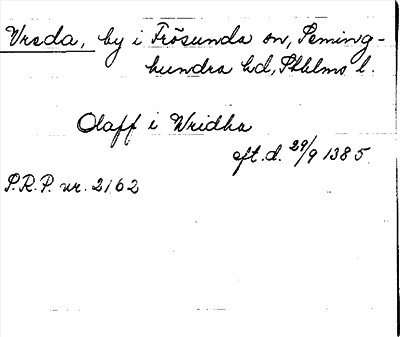 Vreda, by i Frösunda sn, Seming-
hundra hd, Sthlms l.
Olaff i Wridha
eft. d. 29/9 1385.
S.R.P. nr. 2162